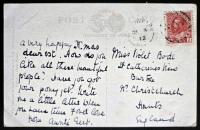 POST
a very happy X'mas
dearest. How do you
like all these beautiful
people? Have you got
your pony yet? Write
me a little letter when
you have time. Fond love
from Aunt
Miss Violet
St Catherines
Nr Christchurch
Hants
England